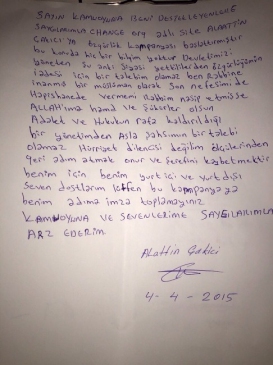 SAYIN KAMUOYUNA BENİ DESTEKLEYENLERE
SAYGILARIMLA CHANGE.org adlı site ALAATTİN
ÇAKICI'ya özgürlük kampanyası başlatmıştır
bu konuda hiç bir bilgim yoktur Devletimizi
yöneten şu anki siyasi yetkililerden özgürlüğümün
iadesi için bir talebim olamaz ben Rabbine
inanmış bir müslüman olarak son nefesimi de
Hapishanede vermemi Rabbim nasip etmişse
ALLAH'ıma hamd ve şükürler olsun
Adalet ve Hukukun rafa kaldırıldığı
bir yönetimden Asla şahsımın bir talebi
olamaz Hürriyet dilencisi değilim ölçülerinden
geri adım atmak onur ve şerefini kaybetmektir
benim için benim yurt içi ve yurt dışı
seven dostlarım lütfen bu kampanyaya
benim adıma imza toplamayınız
KAMUOYUNA VE SEVENLERİME SAYGILARIMLA
ARZ EDERİM
Alaattin Çakıcı
4-4-2015